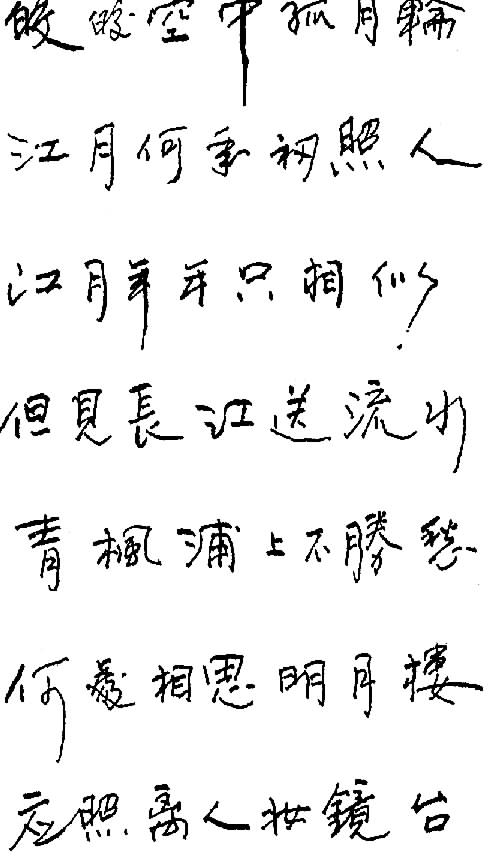 皎皎空中孤月輪
江月何年初照人
江月年年只相似
但見長江送流水
青楓浦上不勝愁
何處相思明月樓
应照离人妆鏡台